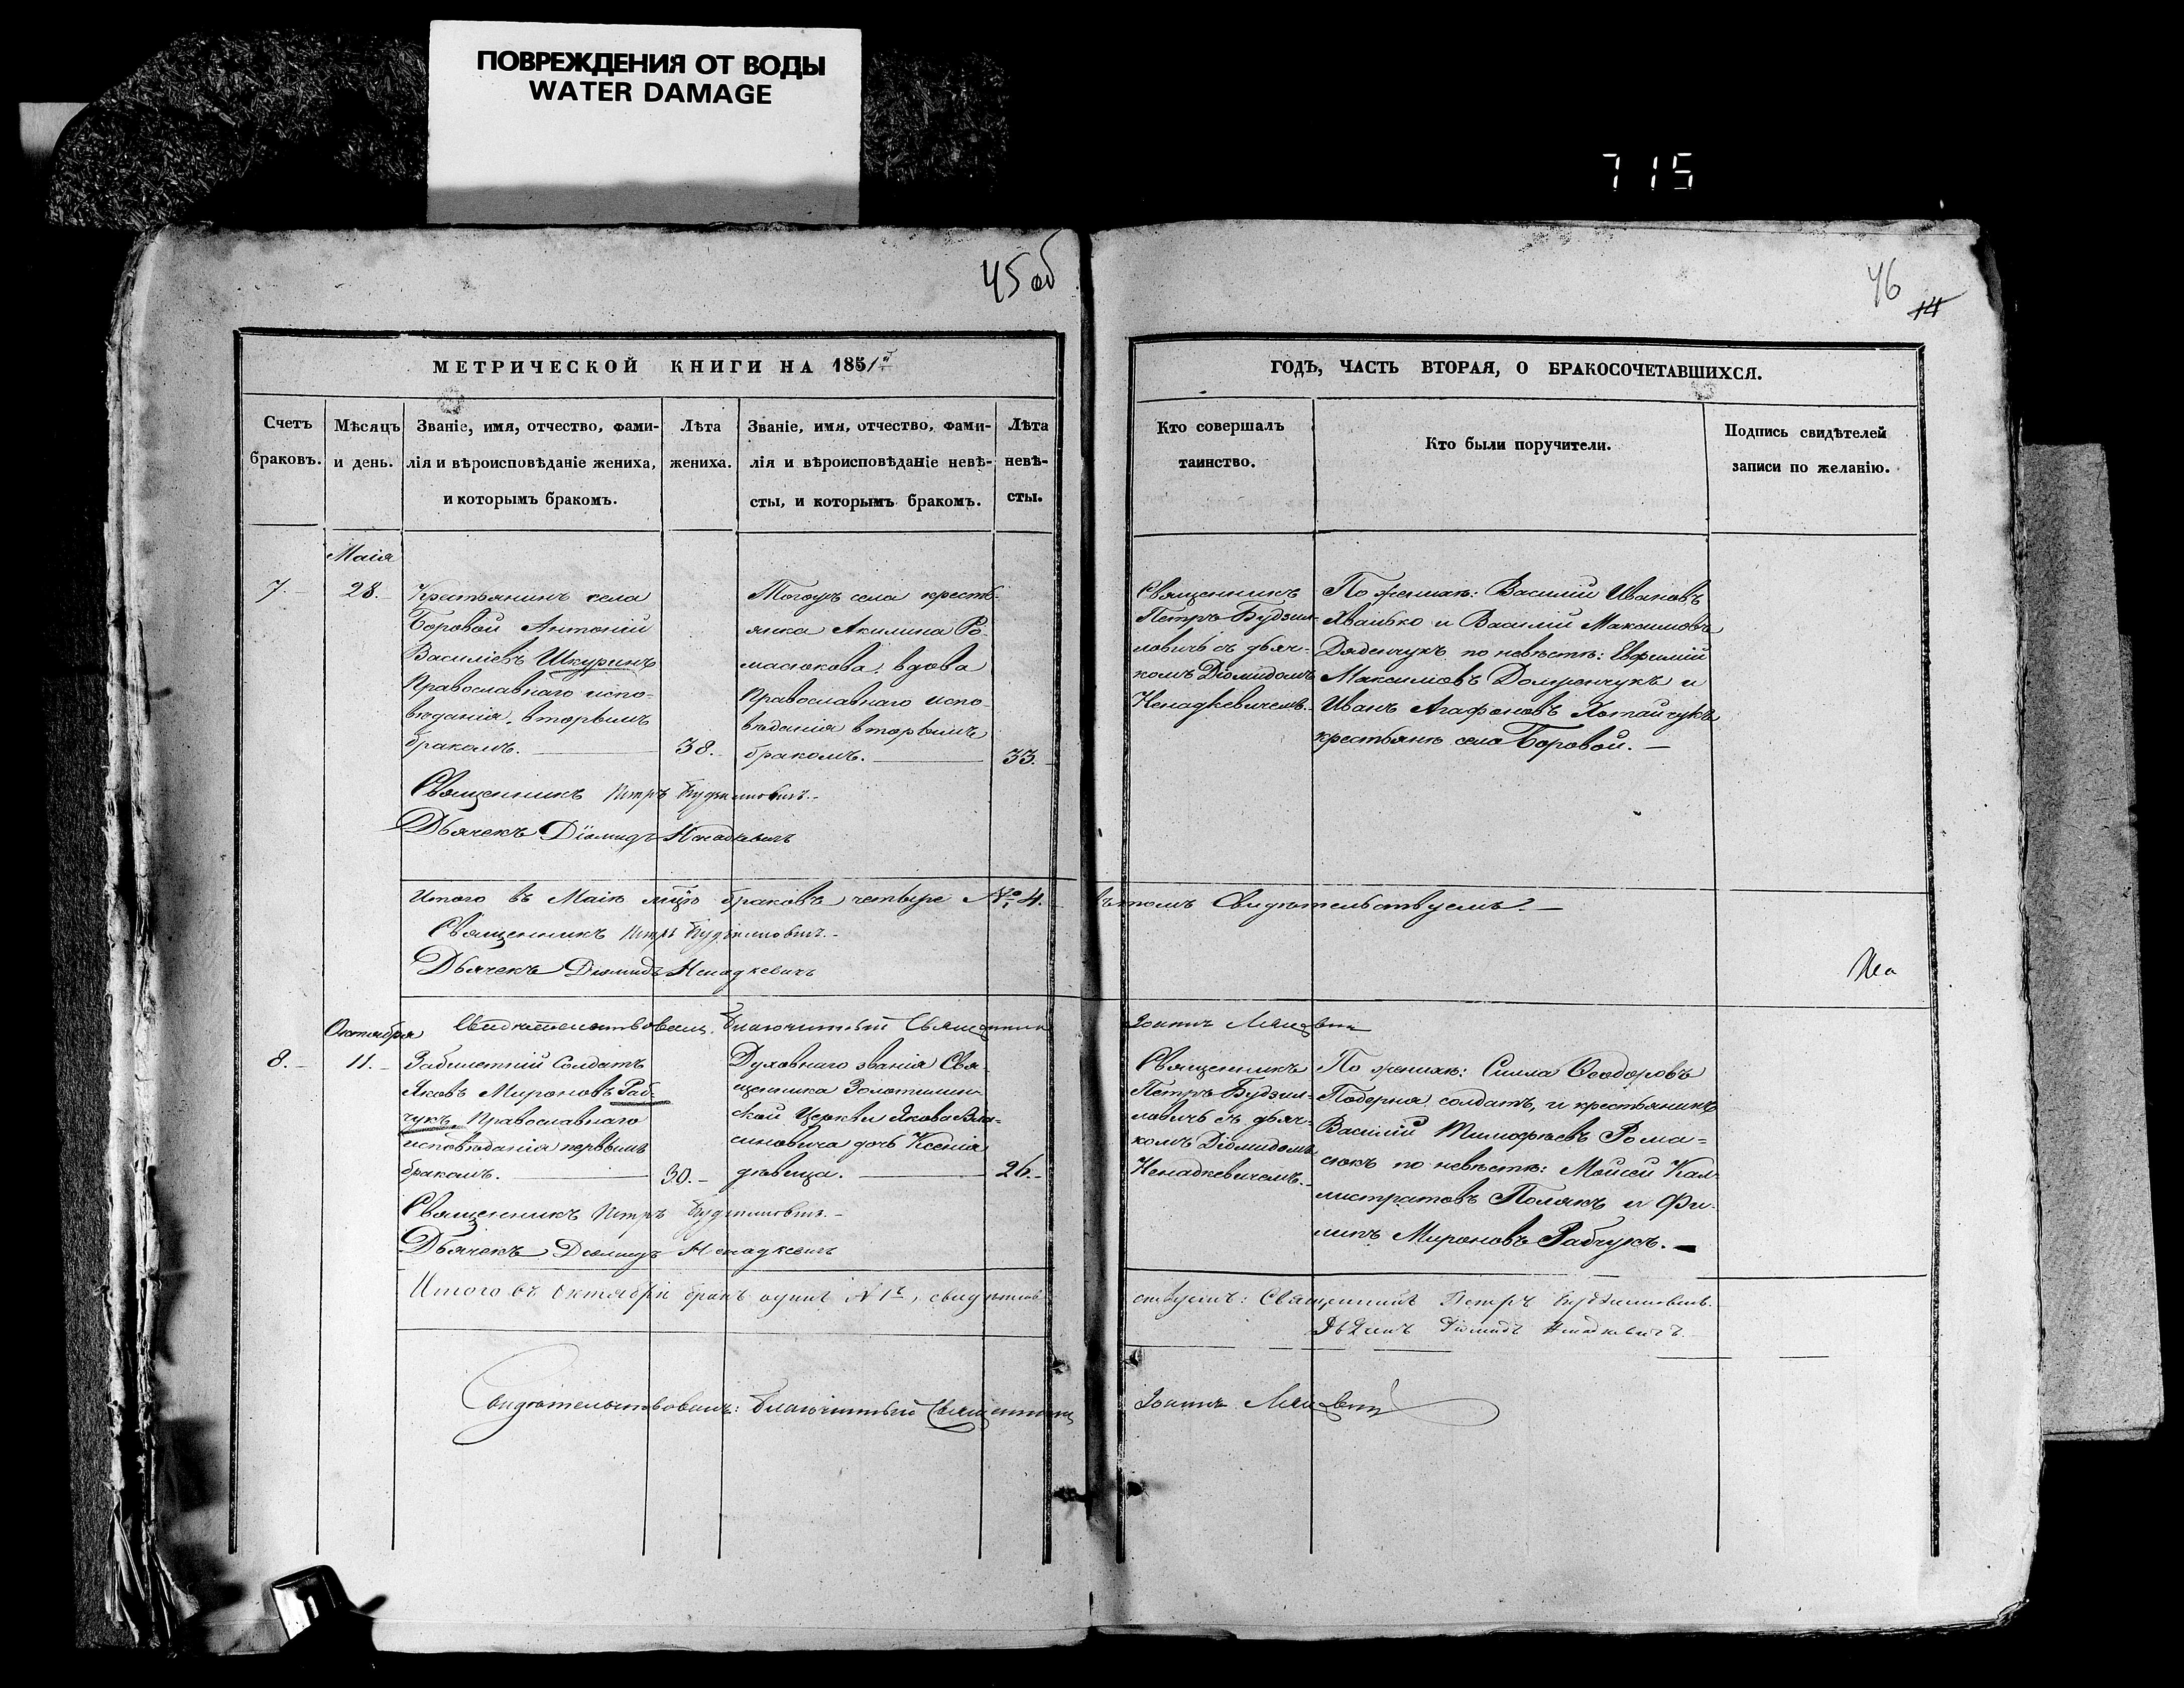 ПОВРЕЖДЕНИЯ ОТ ВОДЫ
WATER DAMAGE
715
45 об
МЕТРИЧЕСКОЙ КНИГИ НА 1851й
Счетъ
браковъ.
Мѣсяцъ
и день.
Званіе, имя, отчество, фами-
лія и вѣроисповѣданіе жениха,
и которымъ бракомъ.
Лѣта
жениха.
Званіе, имя, отчество, фами-
лія и вѣроисповѣданіе невѣ-
сты, и которымъ бракомъ.
Лѣта
невѣ-
сты.
Маія
7.
28.
Крестьянинъ села
Боровой Антоній
Василіевъ Шкуринъ
Православнаго испо-
вѣданія, вторымъ
бракомъ.
38.
Тогожъ села кресть-
янка Акилина Ро-
масюкова, вдова
Православнаго испо-
вѣданія вторымъ
бракомъ.
33.
Священникъ Петръ Будзиловичъ.
Дьячекъ Діомидъ Ненадкевичъ
Итого въ Маіѣ мцѣ браковъ четыре № 4.
Священникъ Петръ Будзиловичъ.
Дьячекъ Діомидъ Ненадкевичъ
Свидѣтельствовалъ Благочинный Священникъ
Октября
8.
11.
Забилетній Солдатъ
Яковъ Мироновъ Раб-
чукъ, Православнаго
исповѣданія первымъ
бракомъ.
30.
Духовнаго званія Свя-
щенника Золотилин-
ской Церкви Якова
дочь Ксенія
дѣвица.
26.
Священникъ Петръ Будзиловичъ.
Дьячекъ Діомидъ Ненадкевичъ
Итого въ Октябрѣ бракъ одинъ № 1й, свидѣтель-
Свидѣтельствовалъ: Благочинный Священникъ
46
14
ГОДЪ, ЧАСТЬ ВТОРАЯ, О БРАКОСОЧЕТАВШИХСЯ.
Кто совершалъ
таинство.
Кто были поручители.
Подпись свидѣтелей
записи по желанію.
Священникъ
Петръ Будзил-
ловичъ съ дьяч-
комъ Діомидомъ
Ненадкевичемъ.
По женихѣ: Василій Ивановъ
и Василій Максимовъ
Дяденчукъ по невѣстѣ: Евфимій
Максимовъ и
Иванъ Агафоновъ
крестьяне села Боровой.
въ томъ Свидѣтельствуемъ.
Іоаннъ
Священникъ
Петръ Будзил-
ловичъ съ дьяч-
комъ Діомидомъ
Ненадкевичемъ.
По женихѣ: Силла Ѳеодоровъ
Подерня солдатъ, и крестьянинъ
Василій Тимофѣевъ Рома-
сюкъ по невѣстѣ: Мойсей Кал-
листратовъ Полякъ и Фи-
липъ Мироновъ Рабчукъ.
ствуемъ: Священникъ Петръ Будзиловичъ.
Дьячекъ Діомидъ Ненадкевичъ.
Іоаннъ